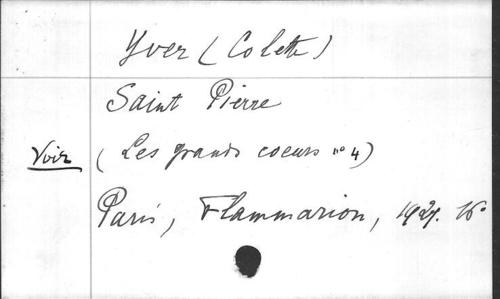 Yver (Colette)
Saint Pierre
Voir (Les grands coeurs n° 4)
Paris, Flammarion, 1927. 16°